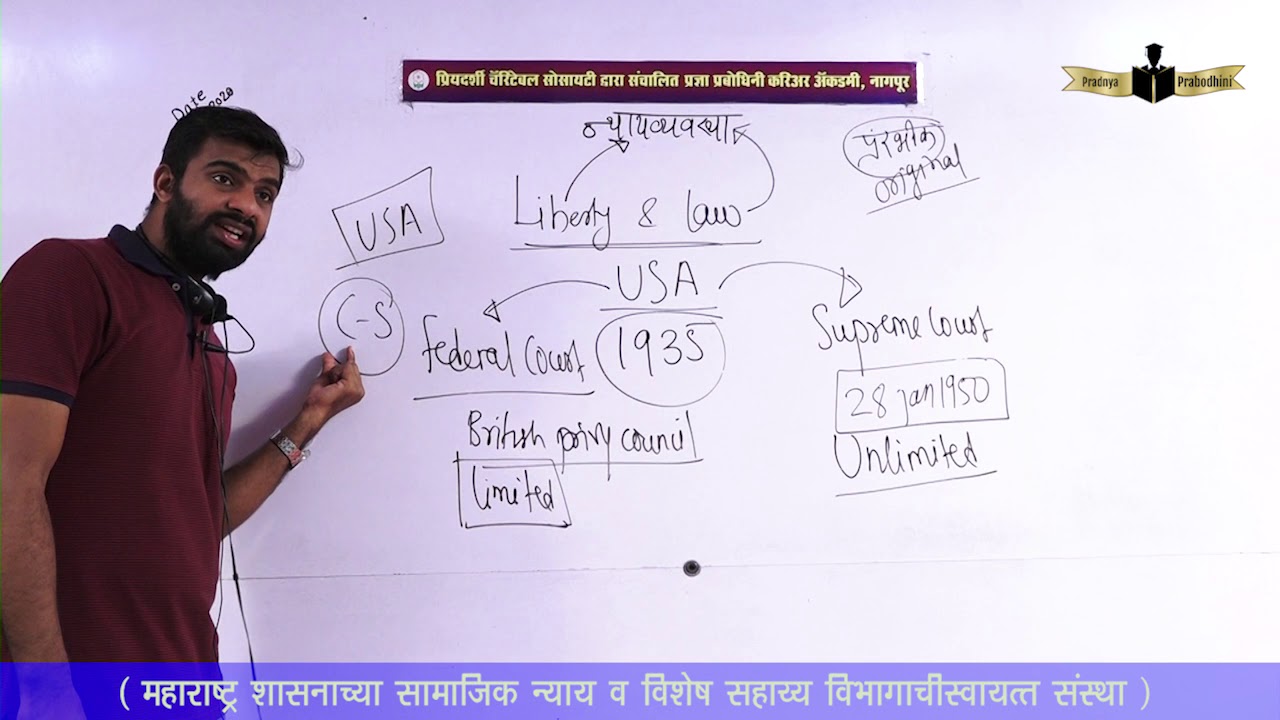 Pradnya Prabodhini
प्रियदर्शी चॅरिटेबल सोसायटी द्वारा संचालित प्रज्ञा प्रबोधिनी करिअर ॲकडमी, नागपूर
Date
2020
न्यायव्यवस्था
प्रारंभीक
original
USA
Liberty & law
USA
C-S
Federal Court
1935
Supreme Court
28 Jan 1950
British privy council
Unlimited
limited
( महाराष्ट्र शासनाच्या सामाजिक न्याय व विशेष सहाय्य विभागाचीस्वायत्त संस्था )